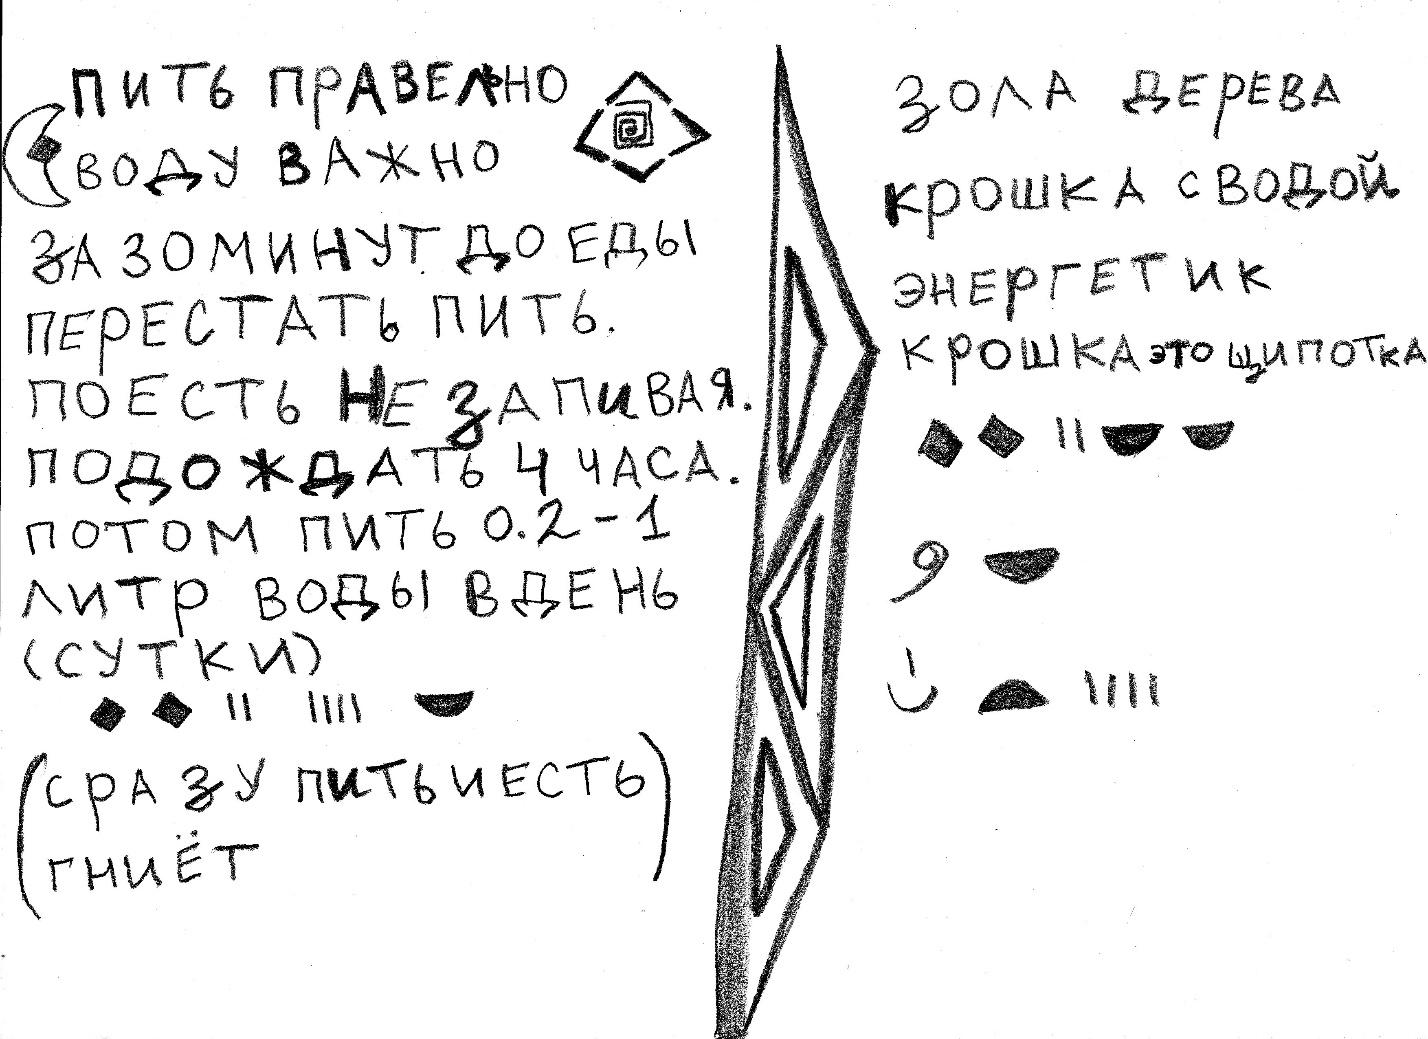 ПИТЬ ПРАВЕЛЬНО
ВОДУ ВАЖНО
ЗА 30 МИНУТ ДО ЕДЫ
ПЕРЕСТАТЬ ПИТЬ.
ПОЕСТЬ НЕ ЗАПИВАЯ.
ПОДОЖДАТЬ 4 ЧАСА.
ПОТОМ ПИТЬ 0.2-1
ЛИТР ВОДЫ В ДЕНЬ
(СУТКИ)
(СРАЗУ ПИТЬ И ЕСТЬ
ГНИЁТ)
ЗОЛА ДЕРЕВА
КРОШКА С ВОДОЙ
ЭНЕРГЕТИК
КРОШКА ЭТО ЩИПОТКА